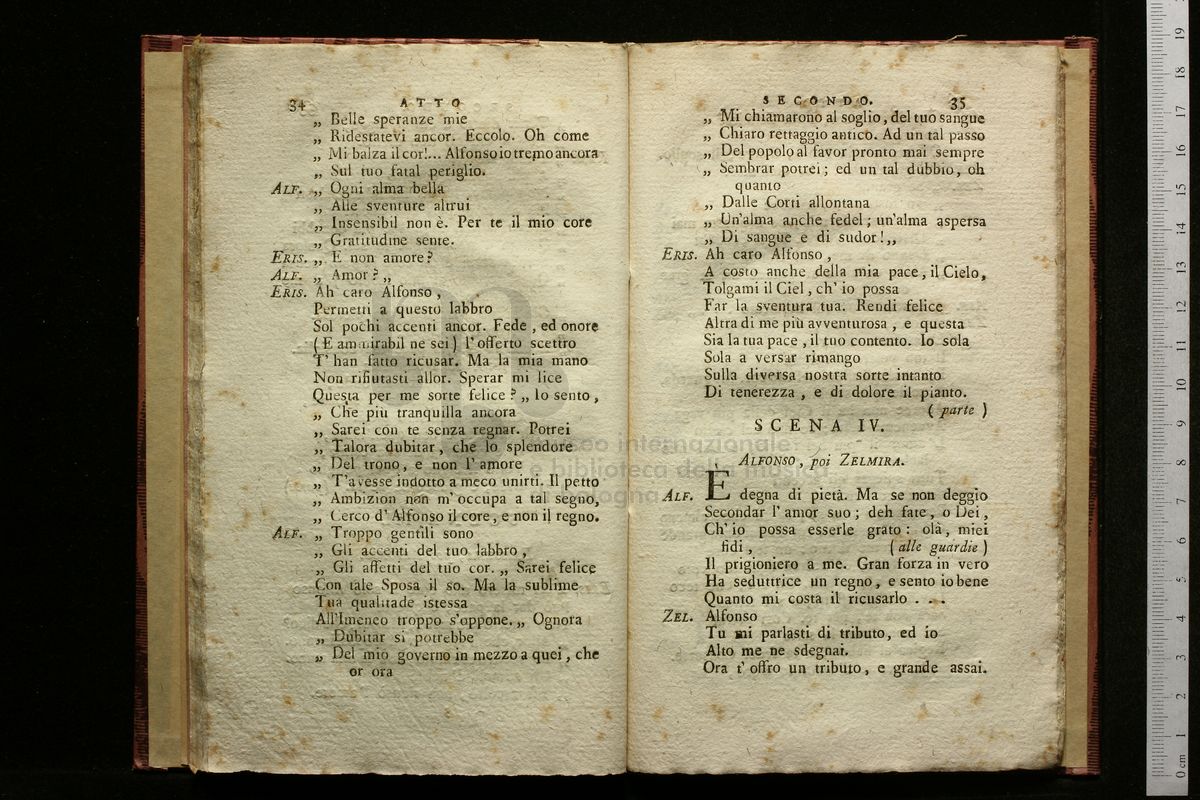 34 ATTO
„ Belle speranze mie
„ Ridestatevi ancor. Eccolo. Oh come
„ Mi balza il cor!... Alfonso io tremo ancora
„ Sul tuo fatal periglio.
ALF. „ Ogni alma bella
„ Alle sventure altrui
„ Insensibil non è. Per te il mio core
„ Gratitudine sente.
ERIS. „ E non amore?
ALF. „ Amor? „
ERIS. Ah caro Alfonso,
Permetti a questo labbro
Sol pochi accenti ancor. Fede, ed onore
(E ammirabil ne sei) l'offerto scettro
T'han fatto ricusar. Ma la mia mano
Non rifiutasti allor. Sperar mi lice
Questa per me sorte felice? „ Io sento,
„ Che più tranquilla ancora
„ Sarei con te senza regnar. Potrei
„ Talora dubitar, che lo splendore
„ Del trono, e non l'amore
„ T'avesse indotto a meco unirti. Il petto
„ Ambizion non m'occupa a tal segno,
„ Cerco d'Alfonso il core, e non il regno.
ALF. „ Troppo gentili sono
„ Gli accenti del tuo labbro,
„ Gli affetti del tuo cor. „ Sarei felice
Con tale Sposa il so. Ma la sublime
Tua qualitade istessa
All'Imeneo troppo s'oppone. „ Ognora
„ Dubitar si potrebbe
„ Del mio governo in mezzo a quei, che
or ora
SECONDO. 35
„ Mi chiamarono al soglio, del tuo sangue
„ Chiaro rettaggio antico. Ad un tal passo
„ Del popolo al favor pronto mai sempre
„ Sembrar potrei; ed un tal dubbio, oh
quanto
„ Dalle Corti allontana
„ Un'alma anche fedel; un'alma aspersa
„ Di sangue e di sudor! „
ERIS. Ah caro Alfonso,
A costo anche della mia pace, il Cielo,
Tolgami il Ciel, ch'io possa
Far la sventura tua. Rendi felice
Altra di me più avventurosa, e questa
Sia la tua pace, il tuo contento. Io sola
Sola a versar rimango
Sulla diversa nostra sorte intanto
Di tenerezza, e di dolore il pianto.
(parte)
SCENA IV.
ALFONSO, poi ZELMIRA.
ALF. È degna di pietà. Ma se non deggio
Secondar l'amor suo; deh fate, o Dei,
Ch'io possa esserle grato: olà, miei
fidi, (alle guardie)
Il prigioniero a me. Gran forza in vero
Ha seduttrice un regno, e sento io bene
Quanto mi costa il ricusarlo . . .
ZEL. Alfonso
Tu mi parlasti di tributo, ed io
Alto me ne sdegnai.
Ora t'offro un tributo, e grande assai.
museo internazionale
e biblioteca della musica
0 cm 1 2 3 4 5 6 7 8 9 10 11 12 13 14 15 16 17 18 19